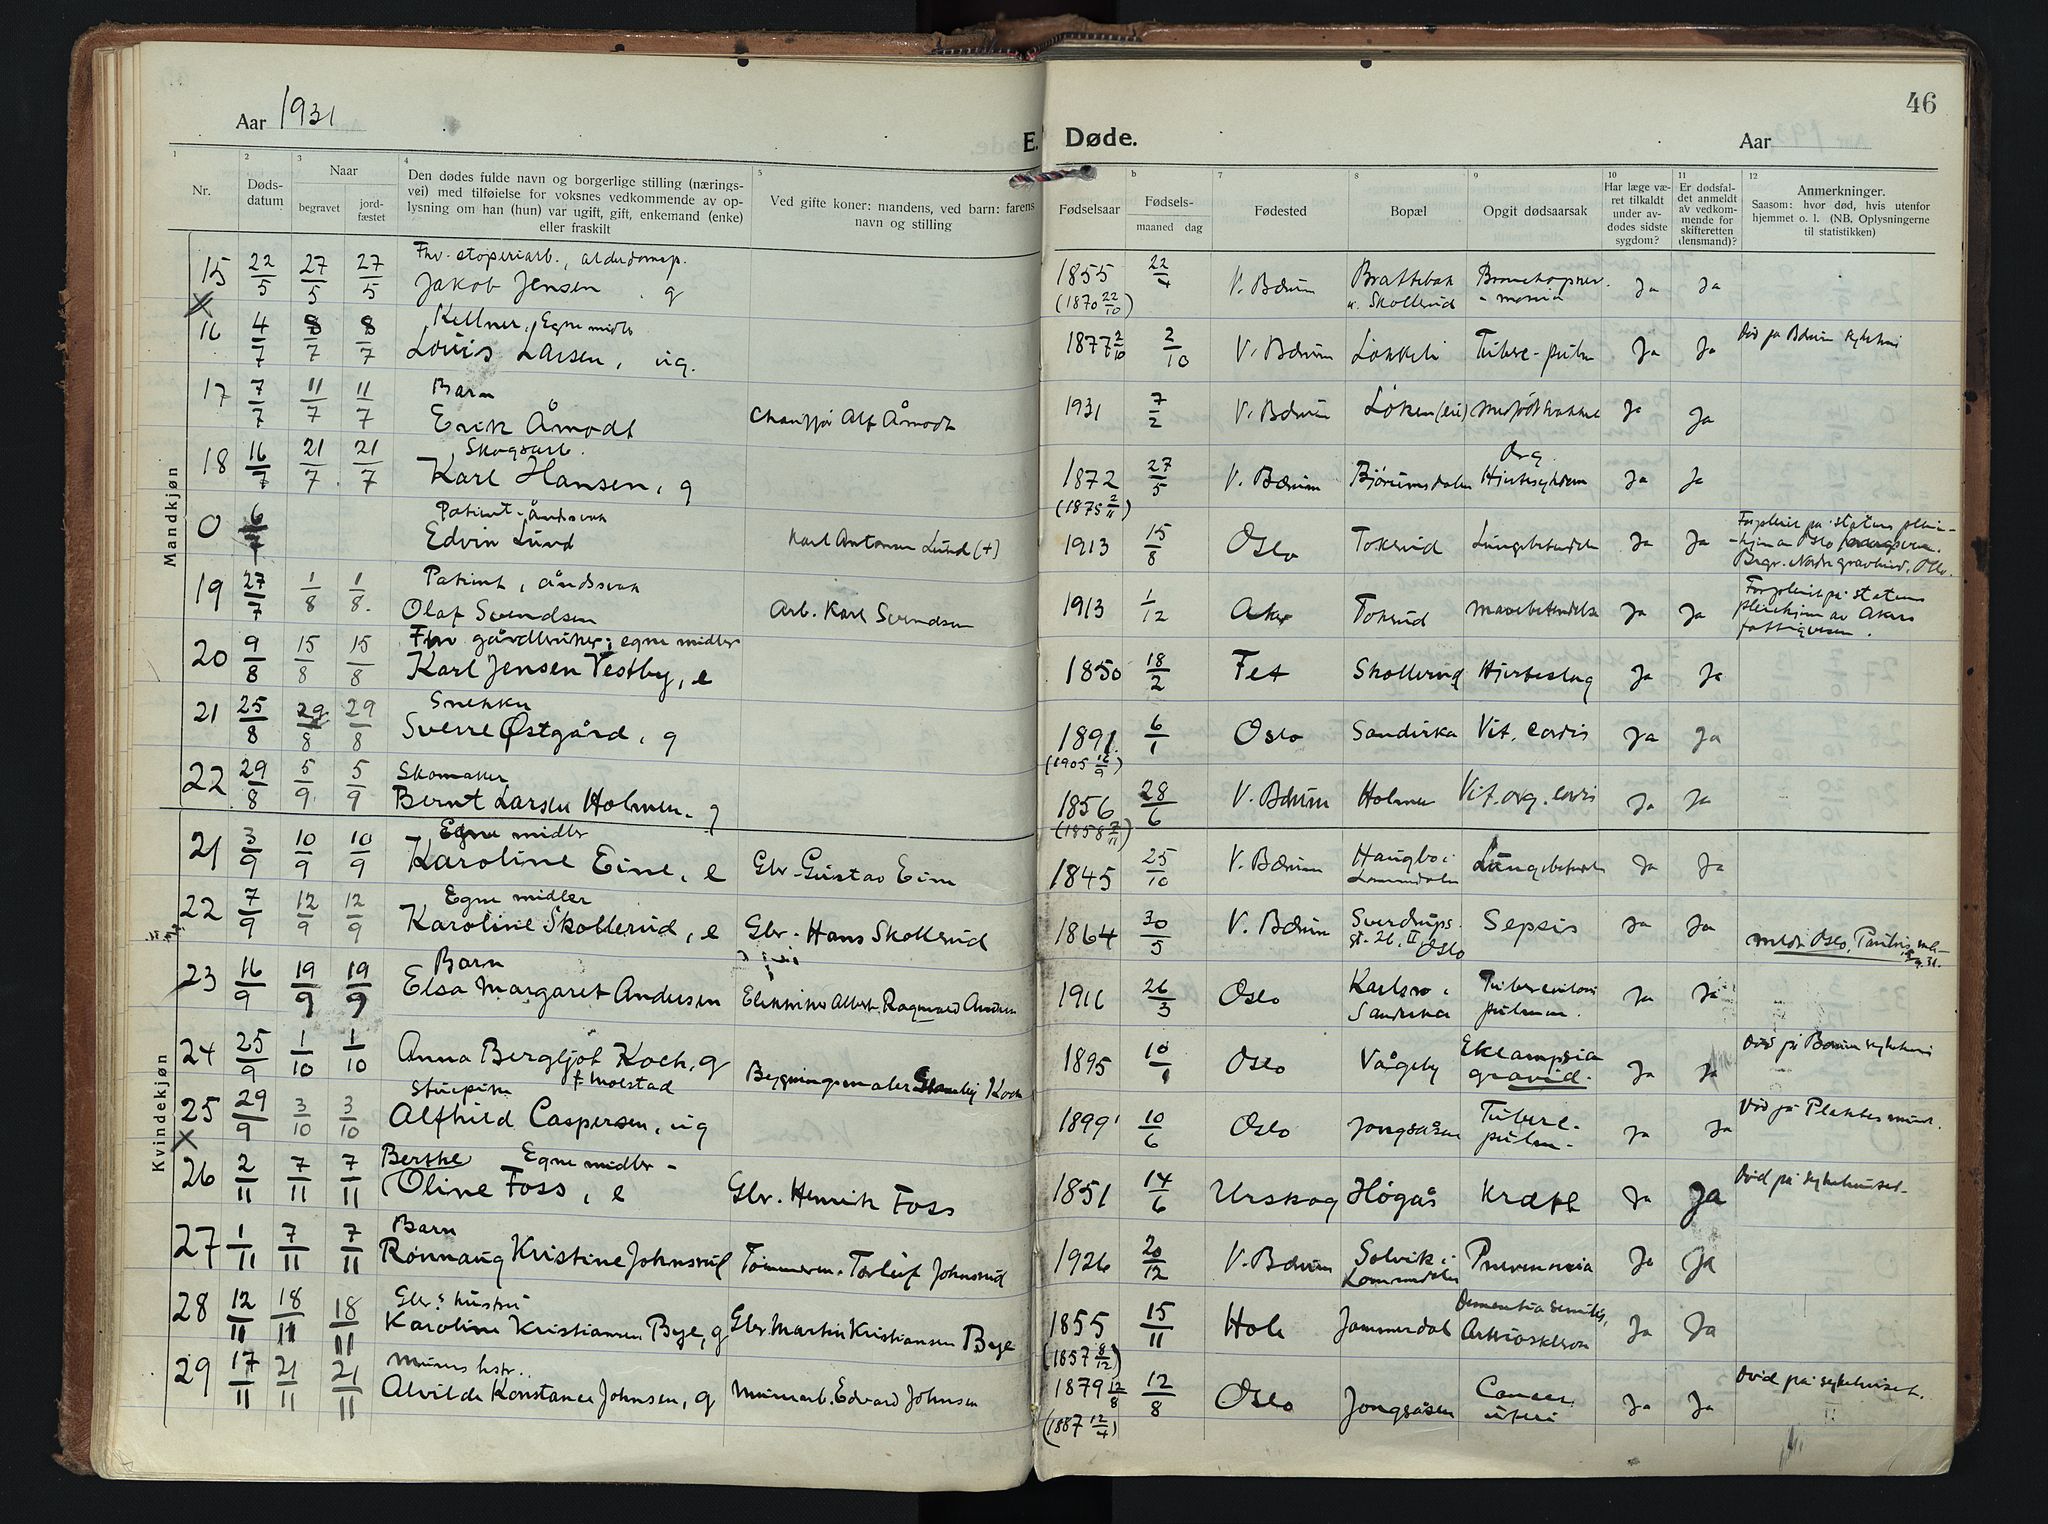 46
Aar 1931
E. Døde.
Aar
1 2 3 4 5 b 7 8 9 10 11 12
Nr.
Døds-
datum
Naar
begravet
jord-
fæstet
Den dødes fulde navn og borgerlige stilling (nærings-
vei) med tilføielse for voksnes vedkommende av op-
lysning om han (hun) var ugift, gift, enkemand (enke)
eller fraskilt
Ved gifte koner: mandens, ved barn: farens
navn og stilling
Fødselsaar
Fødsels-
maaned dag
Fødested
Bopæl
Opgit dødsaarsak
Har læge væ-
ret tilkaldt
under av-
dødes sidste
sygdom?
Er dødsfal-
det anmeldt
av vedkom-
mende for
skifteretten
(lensmand)?
Anmerkninger.
Saasom: hvor død, hvis utenfor
hjemmet o. l. (NB. Oplysningerne
til statistikken)
Mandkjøn
15 22/5 27/5 27/5 Jakob Jensen g 1855 22/4 V. Bærum Brattebak Ja Ja
(1870 22/10) u. Skollerud
Kellner, Egne midler
16 4/7 8/7 8/7 Louis Larsen, ug. 1877 2/10 2/10 V. Bærum Løkkeli Tuberc. pulm Ja Ja Død på Bærum sykehus
Barn
17 7/7 11/7 11/7 Erik Åmodt Chauffør Alf Åmodt 1931 7/2 V. Bærum Løken (eie) Ja Ja
Skogsarb.
18 16/7 21/7 21/7 Karl Hansen, g 1872 27/5 V. Bærum Bjørumsdalen Org. Hjertesykdom Ja Ja
(1875 2/11)
Patient, åndssvak
0 6/7 Edvin Lund Karl Antonsen Lund (+) 1913 15/8 Oslo Tokerud Lungebetendelse Ja Ja Forpleiet på statens pleie-
hjem av Oslo
Begr. Nordre gravlund, Oslo.
Patient, åndssvak
19 27/7 1/8 1/8 Olaf Svendsen Arb. Karl Svendsen 1913 1/12 Aker Tokerud Mavebetendelse Ja Ja Forpleiet på statens
pleiehjem av Akers
fattigvesen.
Fhv gårdbruker; egne midler
20 9/8 15/8 15/8 Karl Jensen Vestby, e 1850 18/2 Fet Skollerud Hjerteslag Ja Ja
Snekker
21 25/8 29/8 29/8 Sverre Østgård, g 1891 6/1 Oslo Sandvika Vit. cordis Ja Ja
(1905 12/9)
Skomaker
22 29/8 5/9 5/9 Bernt Larsen Holmen. g 1856 28/6 V. Bærum Holmen Vit. org. cordis Ja Ja
(1858 7/11)
Kvindekjøn
Egne midler
21 3/9 10/9 10/9 Karoline Eine, e Gbr. Gustav Eine 1845 25/10 V. Bærum Haugbo i Lommedalen Lungebetend. Ja Ja
Egne midler
22 7/9 12/9 12/9 Karoline Skollerud, e Gbr. Hans Skollerud 1864 30/5 V. Bærum Sverdrups gt. 26, II Oslo Sepsis Ja Ja
Barn
23 16/9 19/9 19/9 Elsa Margaret Andersen Elektriker Albert Ragnvald Andersen 1916 26/3 Oslo Karlsro i Sandvika Tuberculosis pulmon. Ja Ja
24 25/9 1/10 1/10 Anna Bergljot Koch, g f. Molstad Bygningsmaler Stanley Koch 1895 10/1 Oslo Vågeby Eklampsia gravid. Ja Ja Død på Bærum sykehus
Stuepike
25 29/9 3/10 3/10 Alfhild Caspersen, ug 1899 10/6 Oslo Jongsåsen Tuberc. pulm. Ja Ja
Berthe Egne midler
26 2/11 7/11 7/11 Oline Foss, e Gbr. Henrik Foss 1851 14/6 Urskog Høgås Kræft Ja Ja Død på sykehuset.
Barn
27 1/11 7/11 7/11 Rønnaug Kristine Johnsrud Tømmerm. Torleif Johnsrud 1926 20/12 V. Bærum Solvik i Lommedalen Pneumonia Ja Ja
Gbr.s hustru
28 12/11 18/11 18/11 Karoline Kristiansen Bye, g Gbr. Martin Kristiansen Bye 1855 15/11 Hole Jammerdal Dementia senilis, Arterioskleros Ja Ja
(1857 8/12)
Murers hstr.
29 17/11 21/11 21/11 Alvilde Konstance Johnsen, g Murerarb. Edvard Johnsen 1879 12/8 12/8 Oslo Jongsåsen Cancer uteri Ja Ja Død på sykehuset.
(1887 12/4)